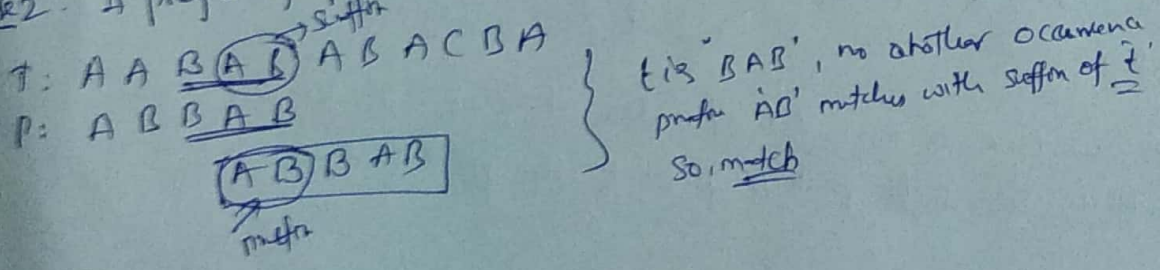 T: A A B A B A B A C B A
suffix
P: A B B A B
A B B A B
prefix
t is "BAB", no another occurrence
prefix 'AB' matches with suffix of 't'
so, match